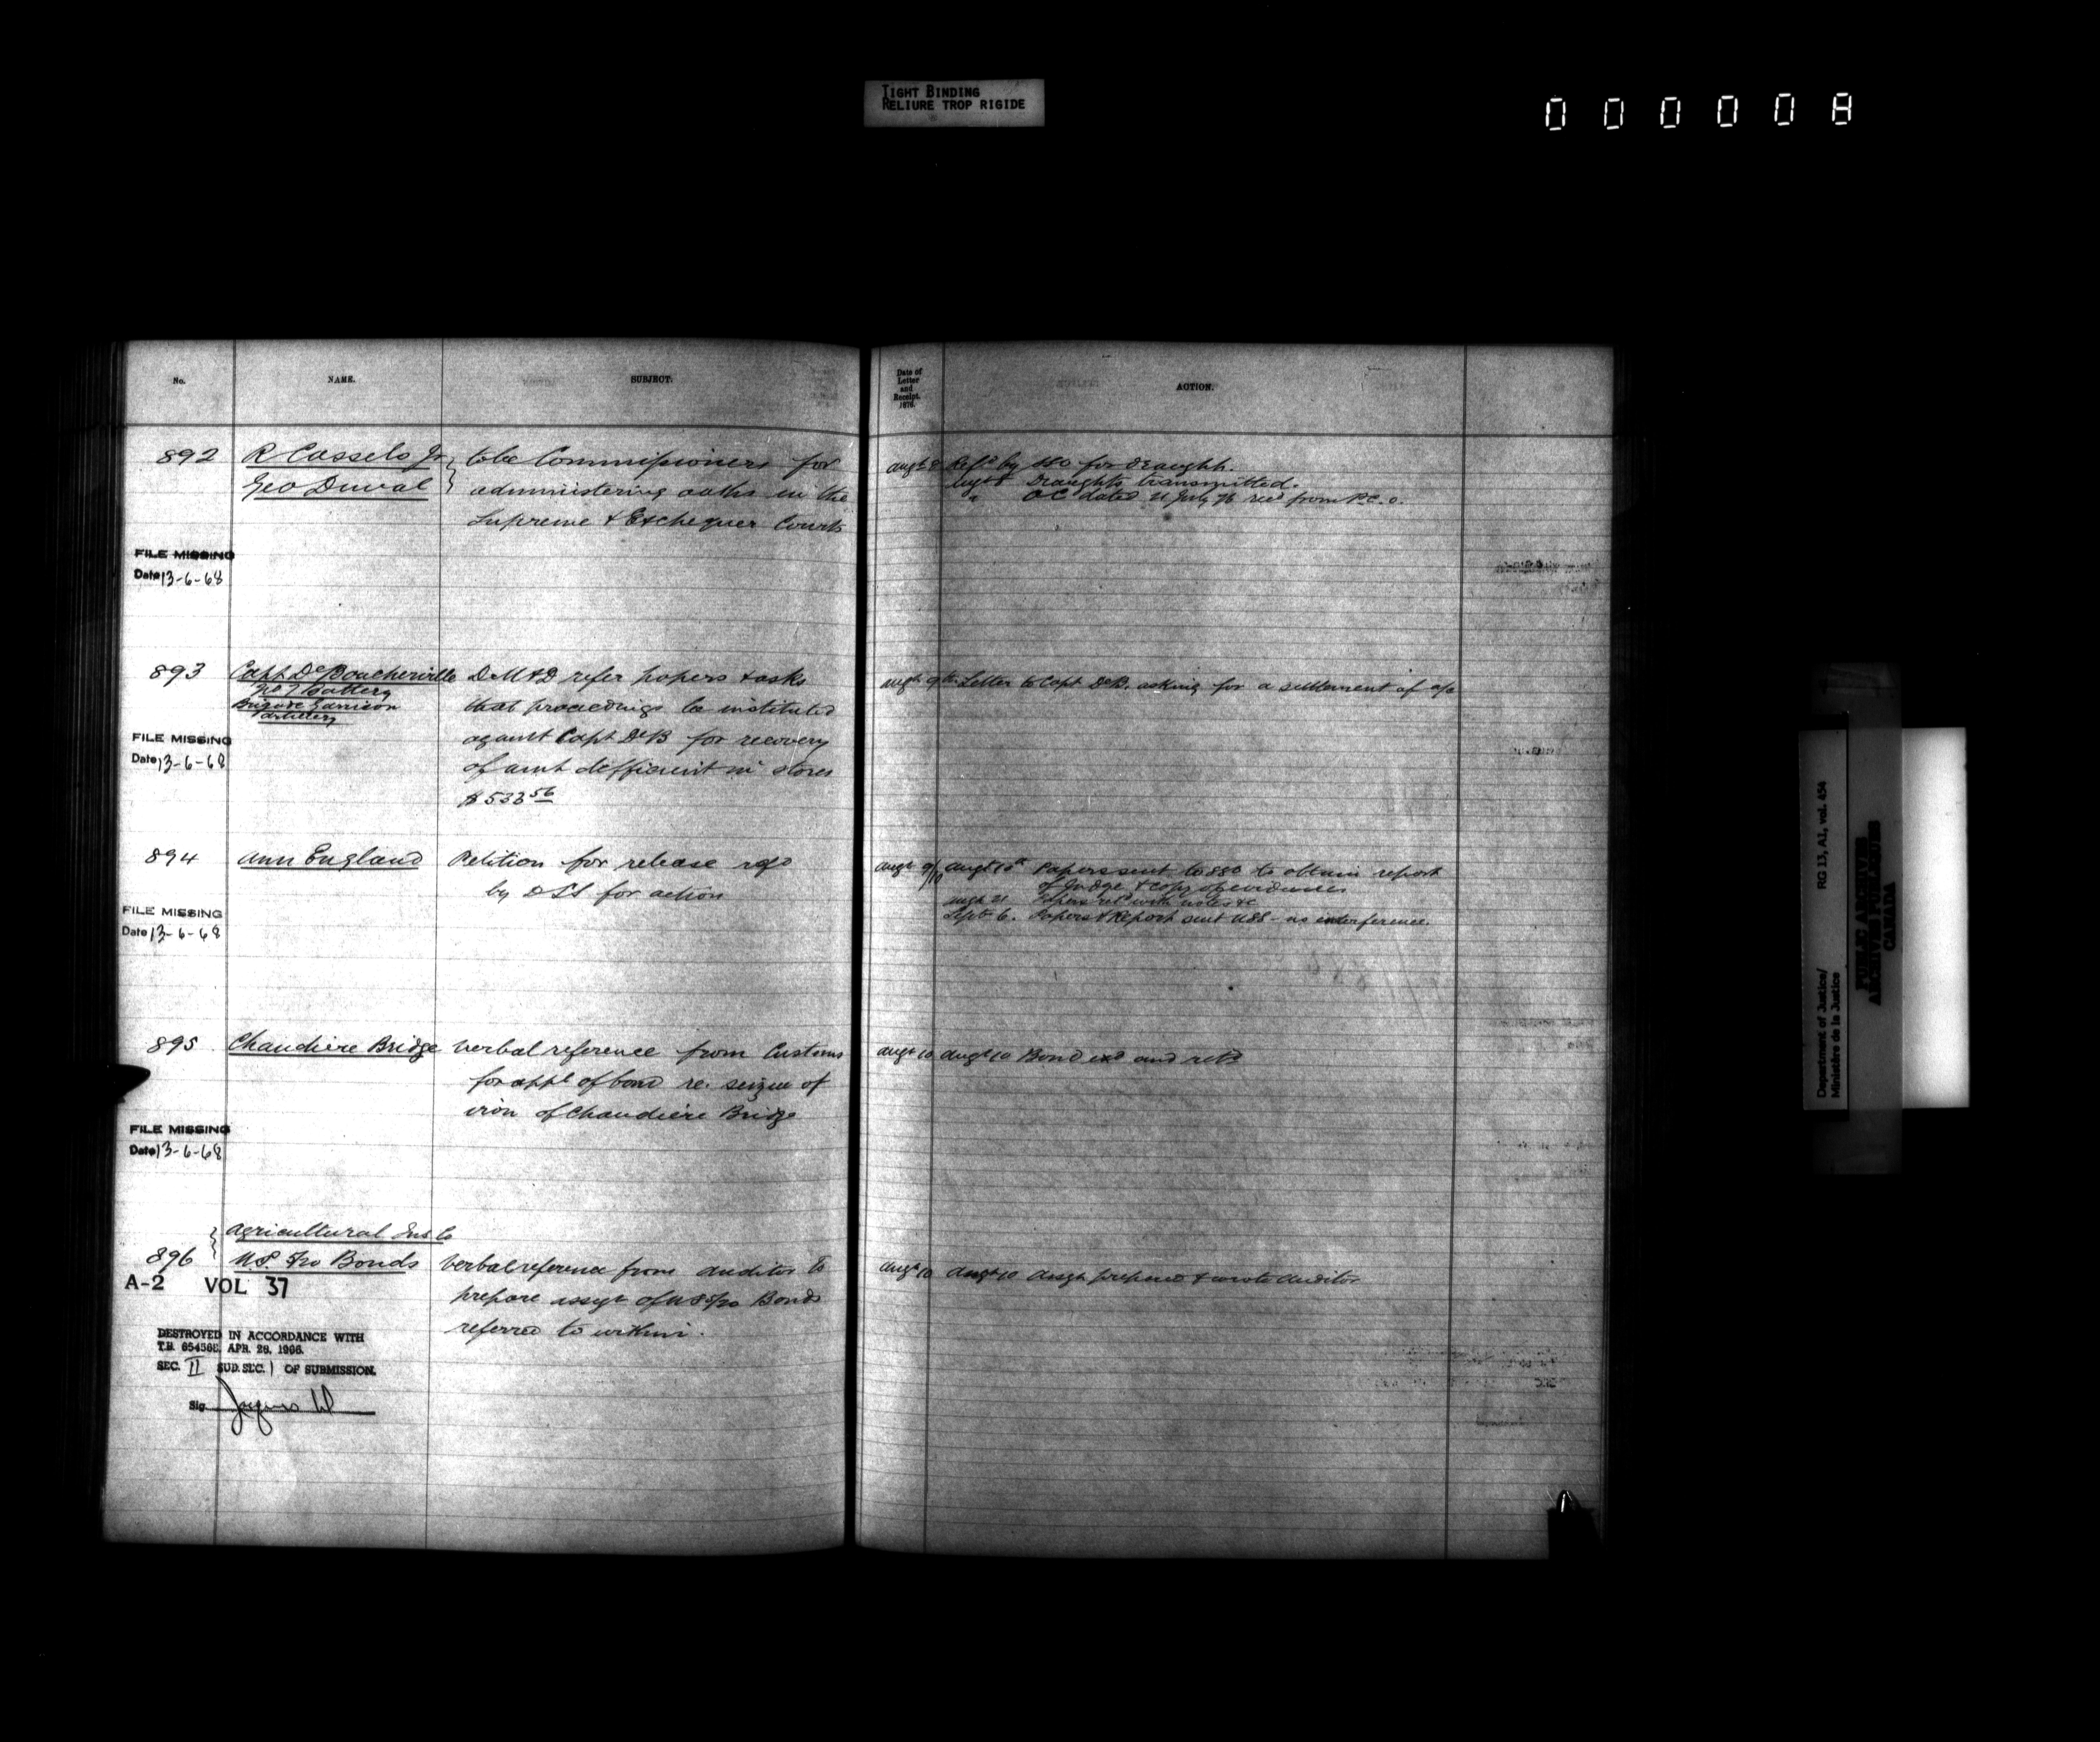 TIGHT BINDING
RELIURE TROP RIGIDE
000008
No. NAME. SUBJECT.
Date of Letter and Receipt. 1876. ACTION.
892 R Cassels Jr to be Commissioners for
Geo Duval administering oaths in the
Supreme & Exchequer Courts
Augt 8 Refd by SSO for draught.
Augt 8 Draughts transmitted.
" OC dated 21 July 76 recd from P.C.O.
FILE MISSING
Date 13-6-68
893 Capt De Boucherville DM&D refer papers & asks
No 7 Battery that proceedings be instituted
Brigade Garrison
Artillery
against Capt De B for recovery
of amt defficient in stores
$533 56
Augt 9th Letter to Capt DeB. asking for a settlement of a/c
FILE MISSING
Date 13-6-68
894 Ann England Petition for release refd
by DSS for action
Augt 9/10 Augt 10th Papers sent to SSO to obtain report
of Judge & copy of evidence
Augt 21 Papers retd with notes &c
Sept 6. Papers & Report sent USS - no interference.
FILE MISSING
Date 13-6-68
895 Chaudière Bridge Verbal reference from Customs
for appl of bond re. seizure of
iron of Chaudière Bridge
Augt 10 Augt 10 Bond exd and retd
FILE MISSING
Date 13-6-68
Agricultural Ins Co
896 U.S. 5/20 Bonds Verbal reference from Auditor to
prepare assgt of US 5/20 Bonds
referred to within.
Augt 10 Augt 10 Assgt prepared & wrote Auditor
A-2 VOL 37
DESTROYED IN ACCORDANCE WITH
T.B. APR. 28, 1966.
SEC. II SUB. SEC. 1 OF SUBMISSION.
Sig
Department of Justice/
Ministère de la Justice
RG 13, A1, vol. 454
PUBLIC ARCHIVES
ARCHIVES PUBLIQUES
CANADA